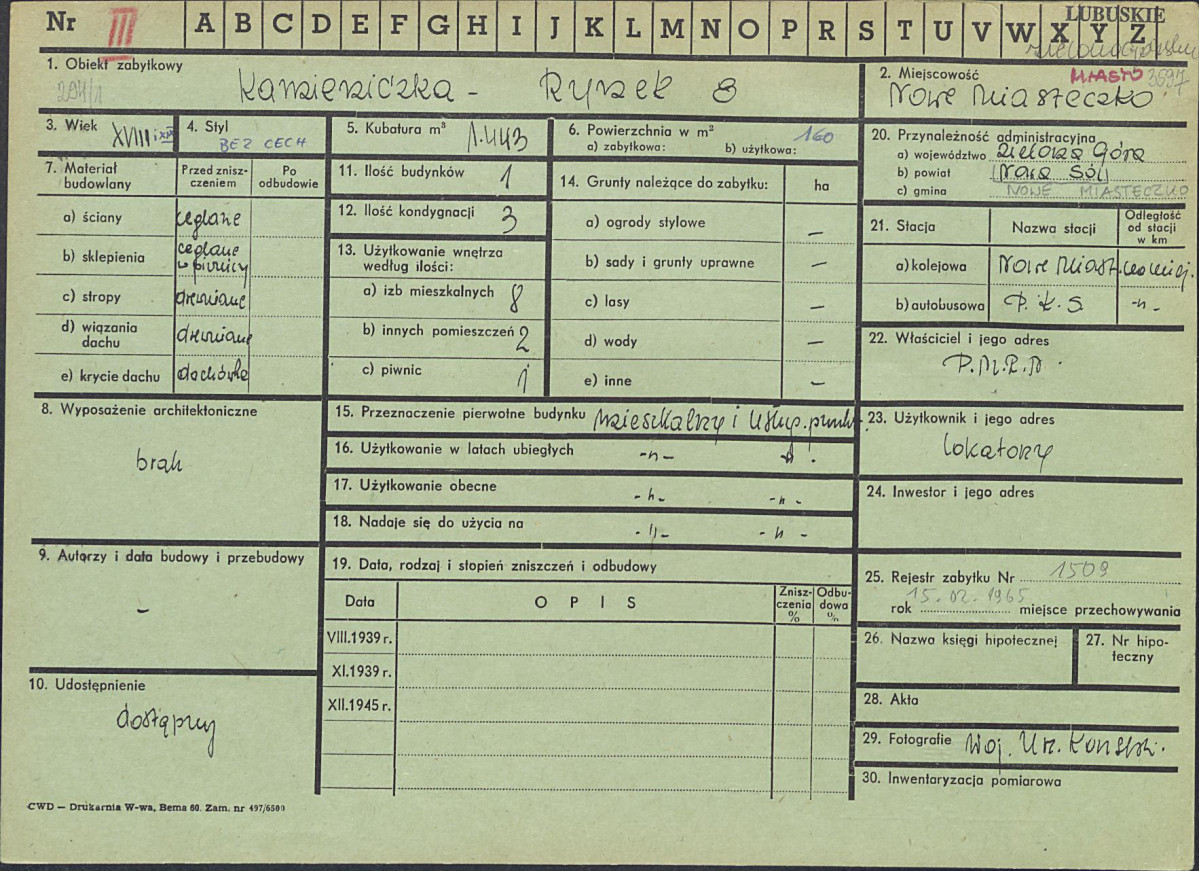 Nr III A B C D E F G H I J K L M N O P R S T U V W X Y Z
LUBUSKIE
1. Obiekt zabytkowy
294/1
Kamieniczka - Rynek 8
2. Miejscowość
MIASTO 3697
Nowe Miasteczko
3. Wiek XVIII i XIX
4. Styl
BEZ CECH
5. Kubatura m³ 1.443
6. Powierzchnia w m² 160
a) zabytkowa: b) użytkowa:
7. Materiał budowlany
Przed zniszczeniem
Po odbudowie
a) ściany ceglane
b) sklepienia ceglane w piwnicy
c) stropy drewniane
d) wiązania dachu drewniane
e) krycie dachu dachówka
8. Wyposażenie architektoniczne
brak
9. Autorzy i data budowy i przebudowy
–
10. Udostępnienie
dostępny
CWD — Drukarnia W-wa, Bema 60. Zam. nr 497/6500
11. Ilość budynków 1
12. Ilość kondygnacji 3
13. Użytkowanie wnętrza według ilości:
a) izb mieszkalnych 8
b) innych pomieszczeń 2
c) piwnic 1
14. Grunty należące do zabytku: ha
a) ogrody stylowe —
b) sady i grunty uprawne —
c) lasy —
d) wody —
e) inne —
15. Przeznaczenie pierwotne budynku mieszkalny i usług. punkt
16. Użytkowanie w latach ubiegłych -"-
17. Użytkowanie obecne -"- -"-
18. Nadaje się do użycia na -"- -"-
19. Data, rodzaj i stopień zniszczeń i odbudowy
Data
OPIS
Zniszczenia %
Odbudowa %
VIII.1939 r.
XI.1939 r.
XII.1945 r.
20. Przynależność administracyjna
a) województwo Zielona Góra
b) powiat Nowa Sól
c) gmina NOWE MIASTECZKO
21. Stacja
Nazwa stacji
Odległość od stacji w km
a) kolejowa Nowe Miast. na miej.
b) autobusowa P.K.S. -"-
22. Właściciel i jego adres
P.M.R.N.
23. Użytkownik i jego adres
lokatorzy
24. Inwestor i jego adres
25. Rejestr zabytku Nr 1509
15.02.1965
rok miejsce przechowywania
26. Nazwa księgi hipotecznej
27. Nr hipoteczny
28. Akta
29. Fotografie Woj. Urz. Konserw.
30. Inwentaryzacja pomiarowa